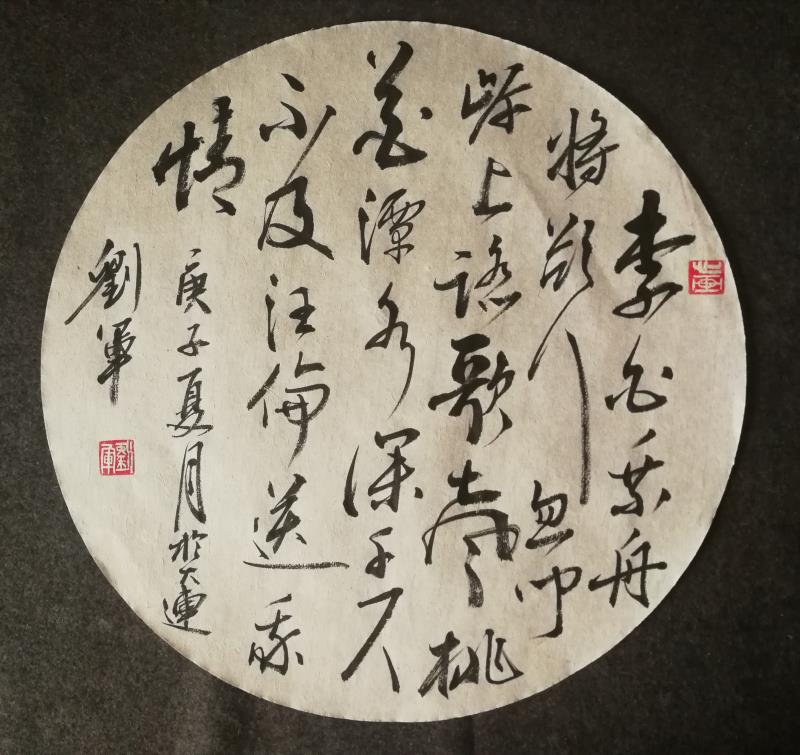 李白乘舟
將欲行忽聞
岸上踏歌聲桃
花潭水深千尺
不及汪倫送我
情
庚子夏月於大連
劉軍
劉軍